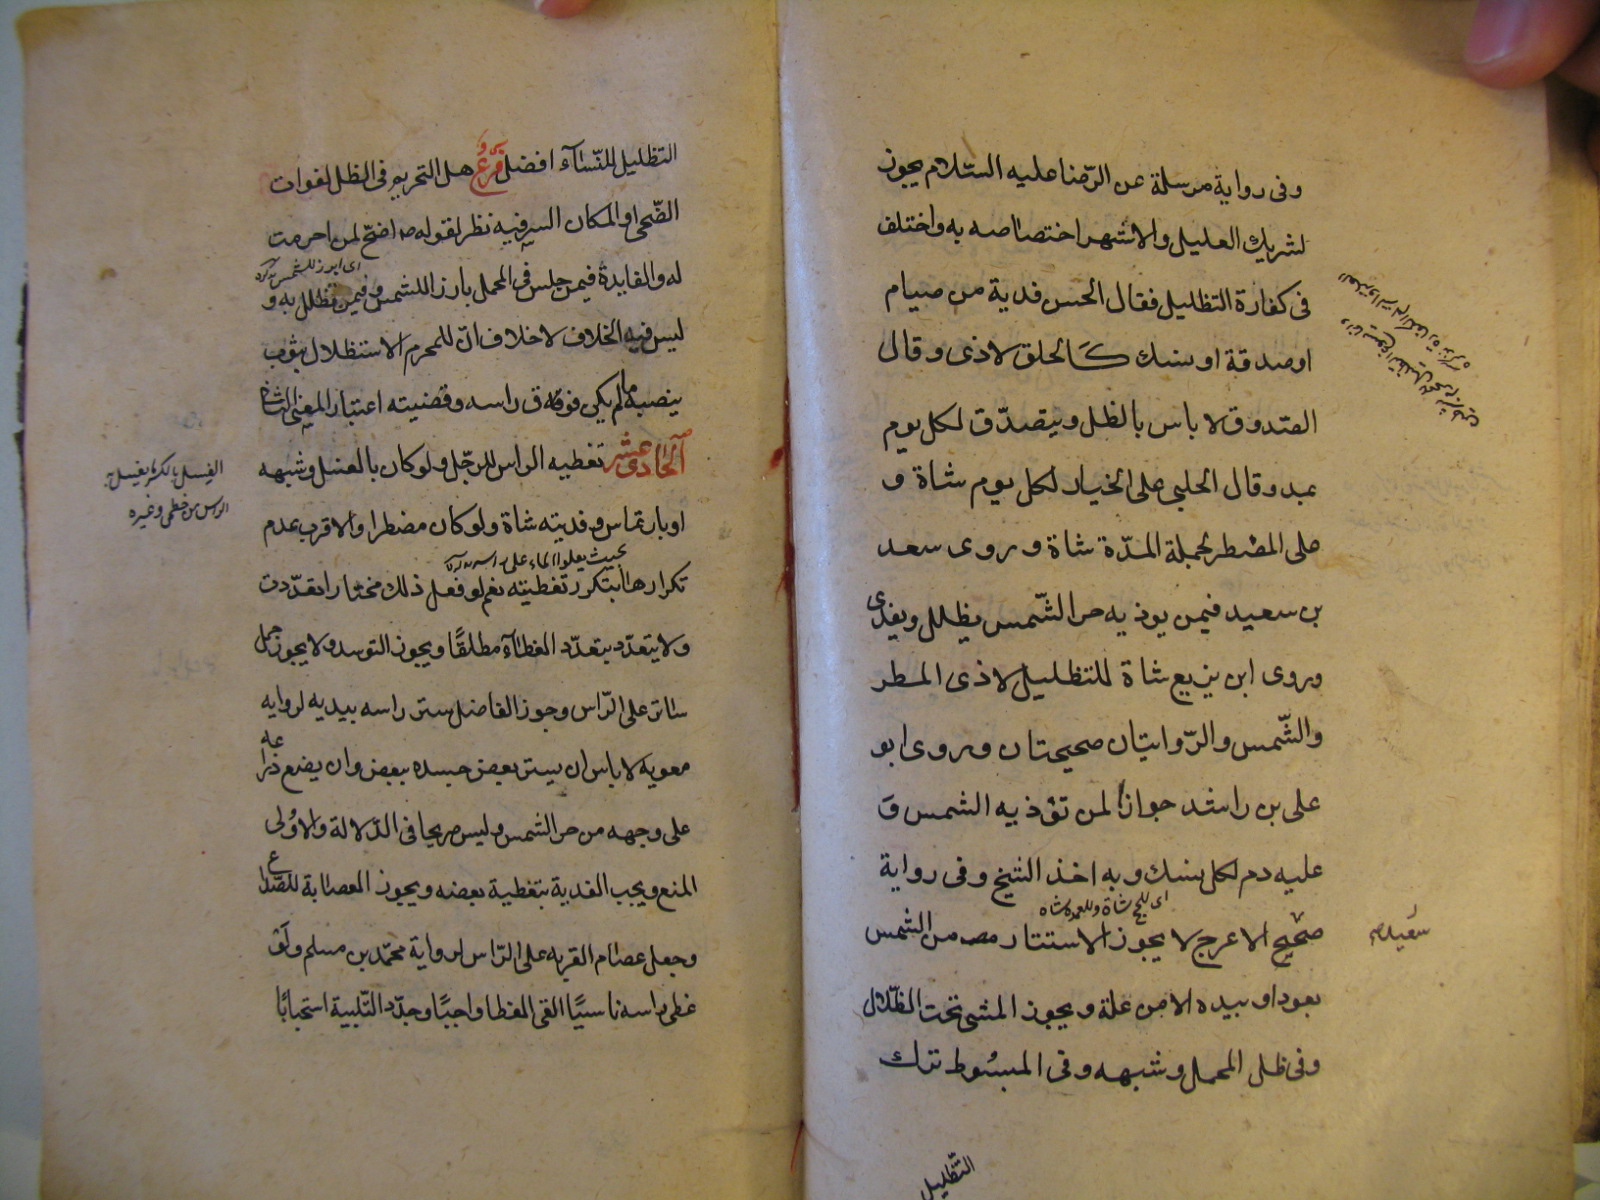 وفى رواية مرسلة عن الرّضا عليه السّلام يجوز
لشريك العليل والاشهر اختصاصه به واختلف
فى كفارة التظليل فقال الحسن فدية من صيام
او صدقة او نسك كَالحلق لاذى وقال
الصّدوق لا باس بالظل ويتصدّق لكل يوم
بمد وقال الحلبى على الخيار لكل يوم شاة و
على المضطر لجملة المدّة شاة وروى سعد
بن سعيد فيمن يوذيه حر الشّمس يظلل ويفدى
وروى ابن بزيع شاة للتظليل لاذى المطر
والشّمس والرّوايتان صحيحتان وروى ابو
على بن راشد جوازا لمن تؤذيه الشمس وَ
عليه دم لكل نسك وبه اخذ الشيخ وفى رواية
اى للحج شاة وللعمرة شاة
صحيح الاعرج لا يجوز الاستتار من الشمس
سعيد
بعود او بيده الا من علة ويجوز المشى تحت الظّلال
وفى ظل المحمل وشبهه وفى المبسُوط ترك
التّظليل
التظليل للنّسَاء افضل فرعٌ هل التحريم فى الظل لفوات
الضّحى او المكان الستر فيه نظر لقوله ص اضحَ لمن احرمت
اى ابرز للشمس
له والفايدة فيمن جلس فى المحمل بارز اللشمس وفيمن تظلل به و
ليس فيه الخلاف لا خلاف انّ للمحرم الاستظلال بثوب
ينصبه ما لم يكن فوق راسه وقضيته اعتبار المعنى الثانى
الحَادى عشر تغطيه الراس للرّجل ولو كان بالغسل وشبهه
الغسل بالكسر ما يغسل به
الراس من خطمى وغيره
او بارتماس وفديته شاة ولو كان مضطرا والاقرب عدم
بحيث يعلوا الماء على راسه
تكرارها بتكرر تغطيته نعم لو فعل ذلك مختارا تعدّدت
ولا يتعدّد بتعدّد الغطاء مطلقًا ويجوز التوسد ولا يجوز حمل
ساتر على الرّاس وجوز الفاضل ستر راسه بيديه لروايه
معويه لا باس ان يستر بعض جسده ببعض وان يضع ذراعه
على وجهه من حر الشمس وليس صريحا فى الدّلالة والاوُلى
المنع ويجب الفدية بتغطية بعضه ويجوز العصابة للصّداع
وجعل عصام القربه على الرّاس لرواية محمّد بن مسلم ولَو
غطى راسه ناسيًا القى الغطا واجبًا وجدّد التّلبية استحبابًا